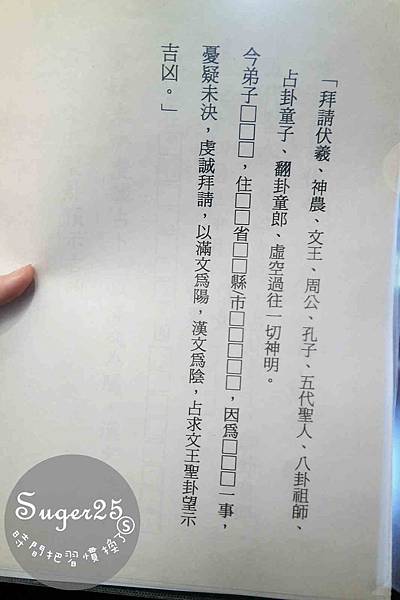 「拜請伏羲、神農、文王、周公、孔子、五代聖人、八卦祖師、
占卦童子、翻卦童郎、虛空過往一切神明。
今弟子□□□，住□□省□□縣市□□□□□，因為□□□一事，
憂疑未決，虔誠拜請，以滿文為陽，漢文為陰，占求文王聖卦望示
吉凶。」
Suger25
時間把習慣換了
S